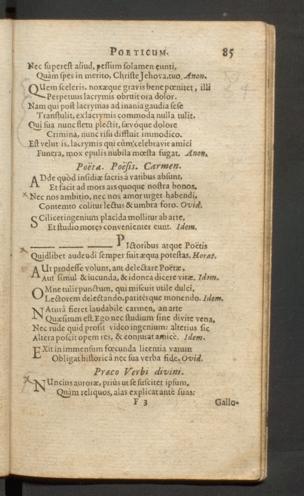 POETICUM. 85
Nec superest aliud, pessum solamen eunti,
Quàm spes in merito, Christe Jehova, tuo. Anon.
QUem sceleris, noxæque gravis bene pœnitet, illi
Perpetuus lacrymis obruit ora dolor.
Nam qui post lacrymas ad inania gaudia sese
Transtulit, ex lacrymis commoda nulla tulit.
Qui sua nunc fletu plectit, sævoque dolore
Crimina, nunc risu diffluit immodico.
Est velut is, lacrymis qui cùm celebravit amici
Funera, mox epulis nubila mœsta fugat. Anon.
Poëta. Poësis. Carmen.
ADde quòd insidiæ sacris à vatibus absunt,
Et facit ad mores ars quoque nostra bonos.
Nec nos ambitio, nec nos amor urget habendi,
Contemto colitur lectus & umbra foro. Ovid.
SCilicet ingenium placida mollitur ab arte,
Et studio mores convenienter eunt. Idem.
Pictoribus atque Poëtis
Quidlibet audendi semper fuit æqua potestas. Horat.
AUt prodesse volunt, aut delectare Poëtæ,
Aut simul & jucunda, & idonea dicere vitæ. Idem.
OMne tulit punctum, qui miscuit utile dulci,
Lectorem delectando, pariterque monendo. Idem.
NAturâ fieret laudabile carmen, an arte
Quæsitum est Ego nec studium sine divite vena,
Nec rude quid prosit video ingenium: alterius sic
Altera poscit opem res, & conjurat amicè. Idem.
EXit in immensum fœcunda licentia vatum
Obligat historicâ nec sua verba fide. Ovid.
Præco Verbi divini.
NUncius auroræ, priùs ut se suscitet ipsum,
Quàm reliquos, alas explicat antè suas:
F 3 Gallo-